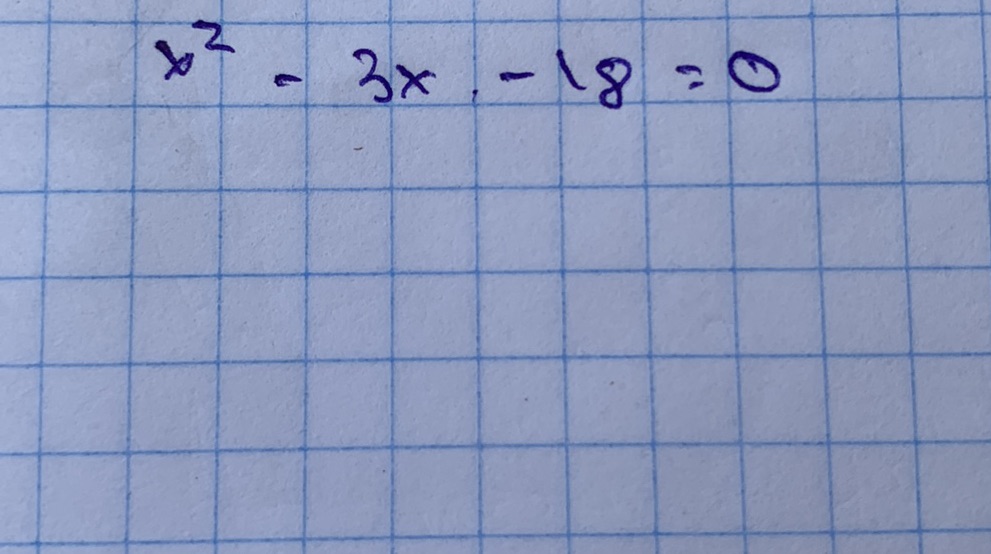 x² - 3x - 18 = 0